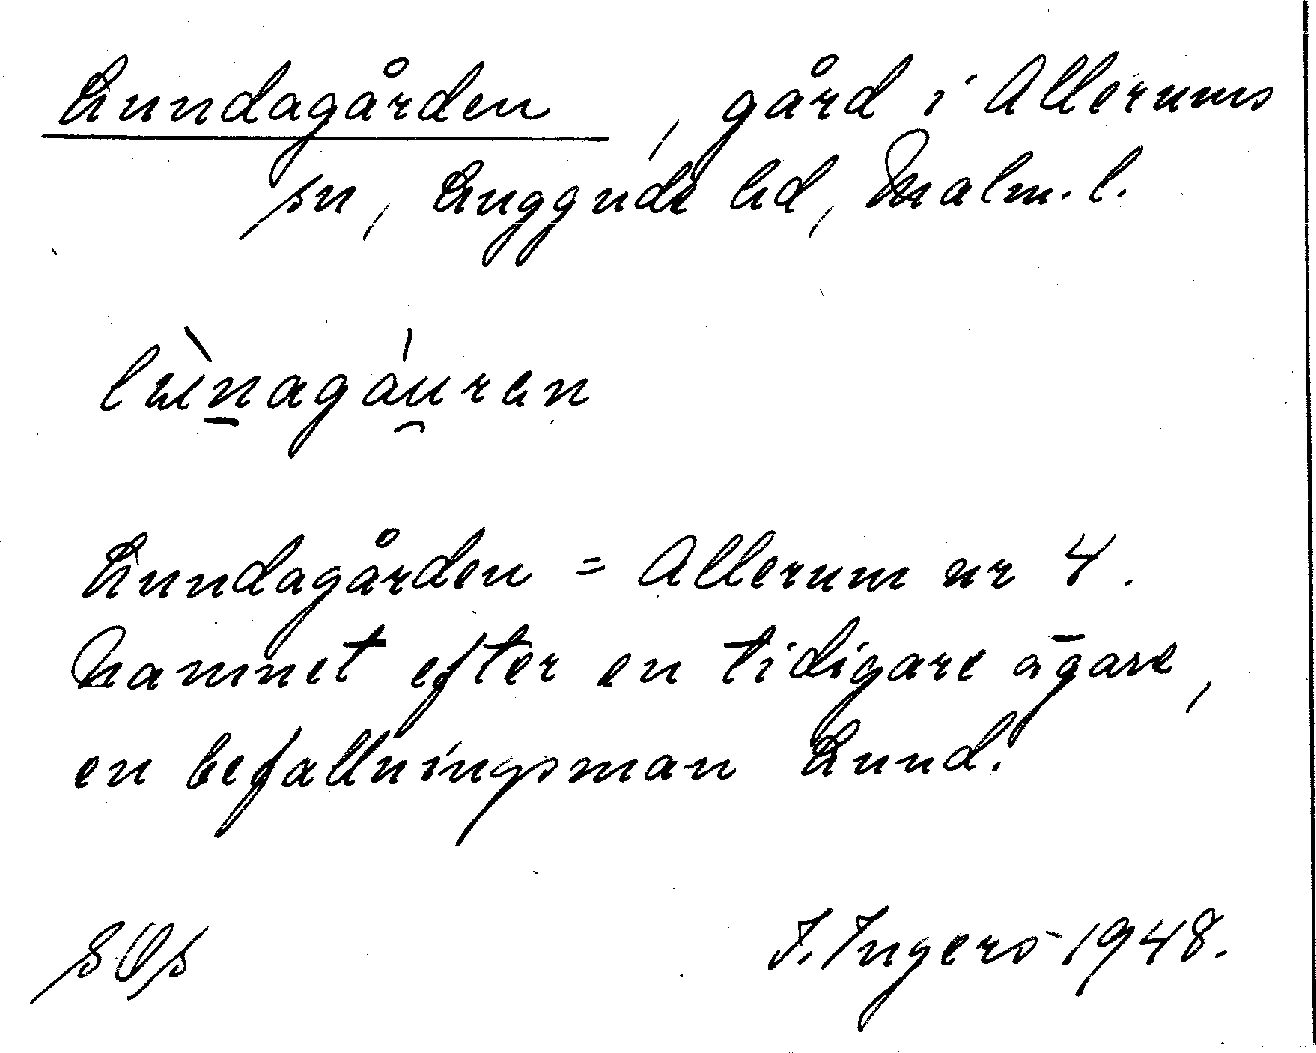 Lundagården, gård i Allerums
sn, Luggude hd, Malm. l.
Lundagården = Allerum nr 4.
Namnet efter en tidigare ägare,
en befallningsman Lund.
I. Ingers 1948.